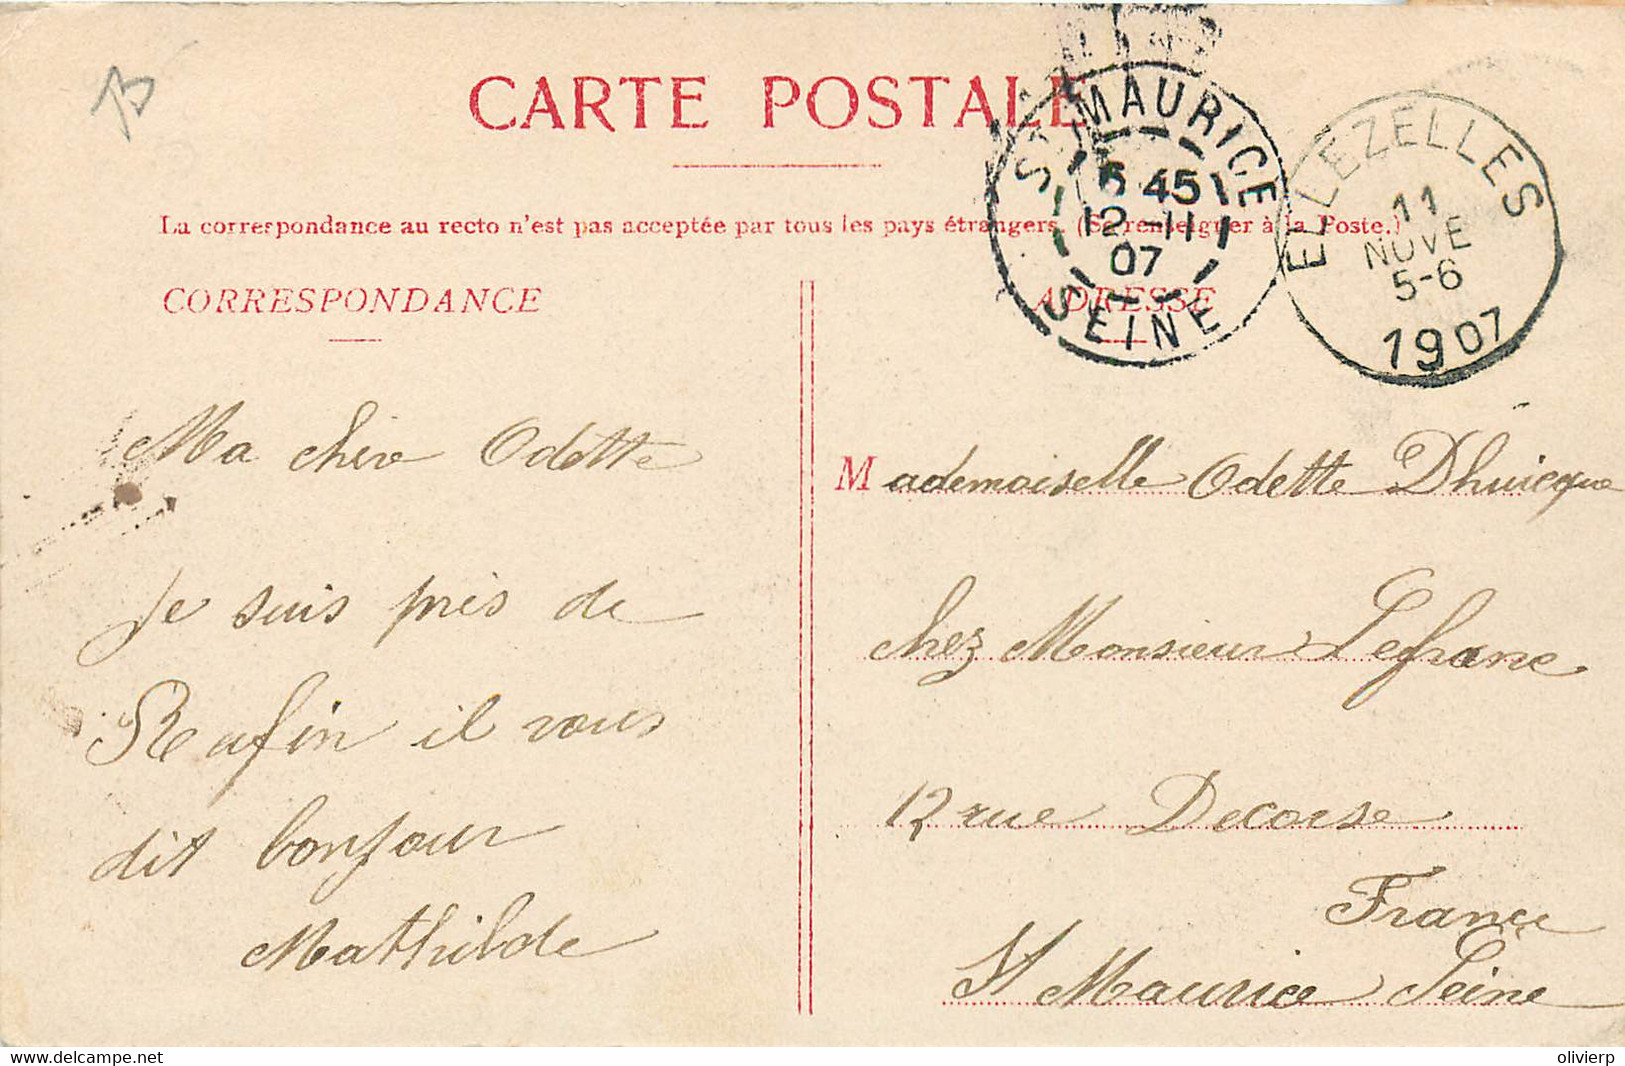 CARTE POSTALE
La correspondance au recto n'est pas acceptée par tous les pays étrangers. (Se renseigner à la Poste.)
CORRESPONDANCE
ADRESSE
ST MAURICE
6 45
12-11
07
SEINE
ELLEZELLES
11
NOVE
5-6
1907
Ma chère Odette
je suis près de
Rufin il vous
dit bonjour
Mathilde
Mademoiselle Odette Dhuicque
chez Monsieur Lefranc
12 rue Decorse
France
St Maurice Seine
www.delcampe.net
olivierp